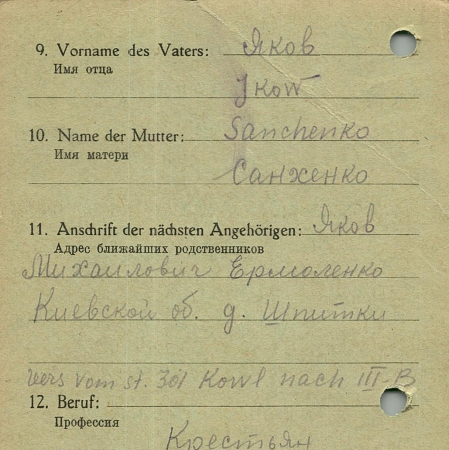 9. Vorname des Vaters: Яков
Имя отца
Jkow
10. Name der Mutter: Sanchenko
Имя матери
Санхенко
11. Anschrift der nächsten Angehörigen: Яков
Адрес ближайших родственников
Михаилович Ермоленко
Киевской об. д. Шпитки
vers vom st. 301 Kowl nach III-B
12. Beruf:
Профессия
Крестьян